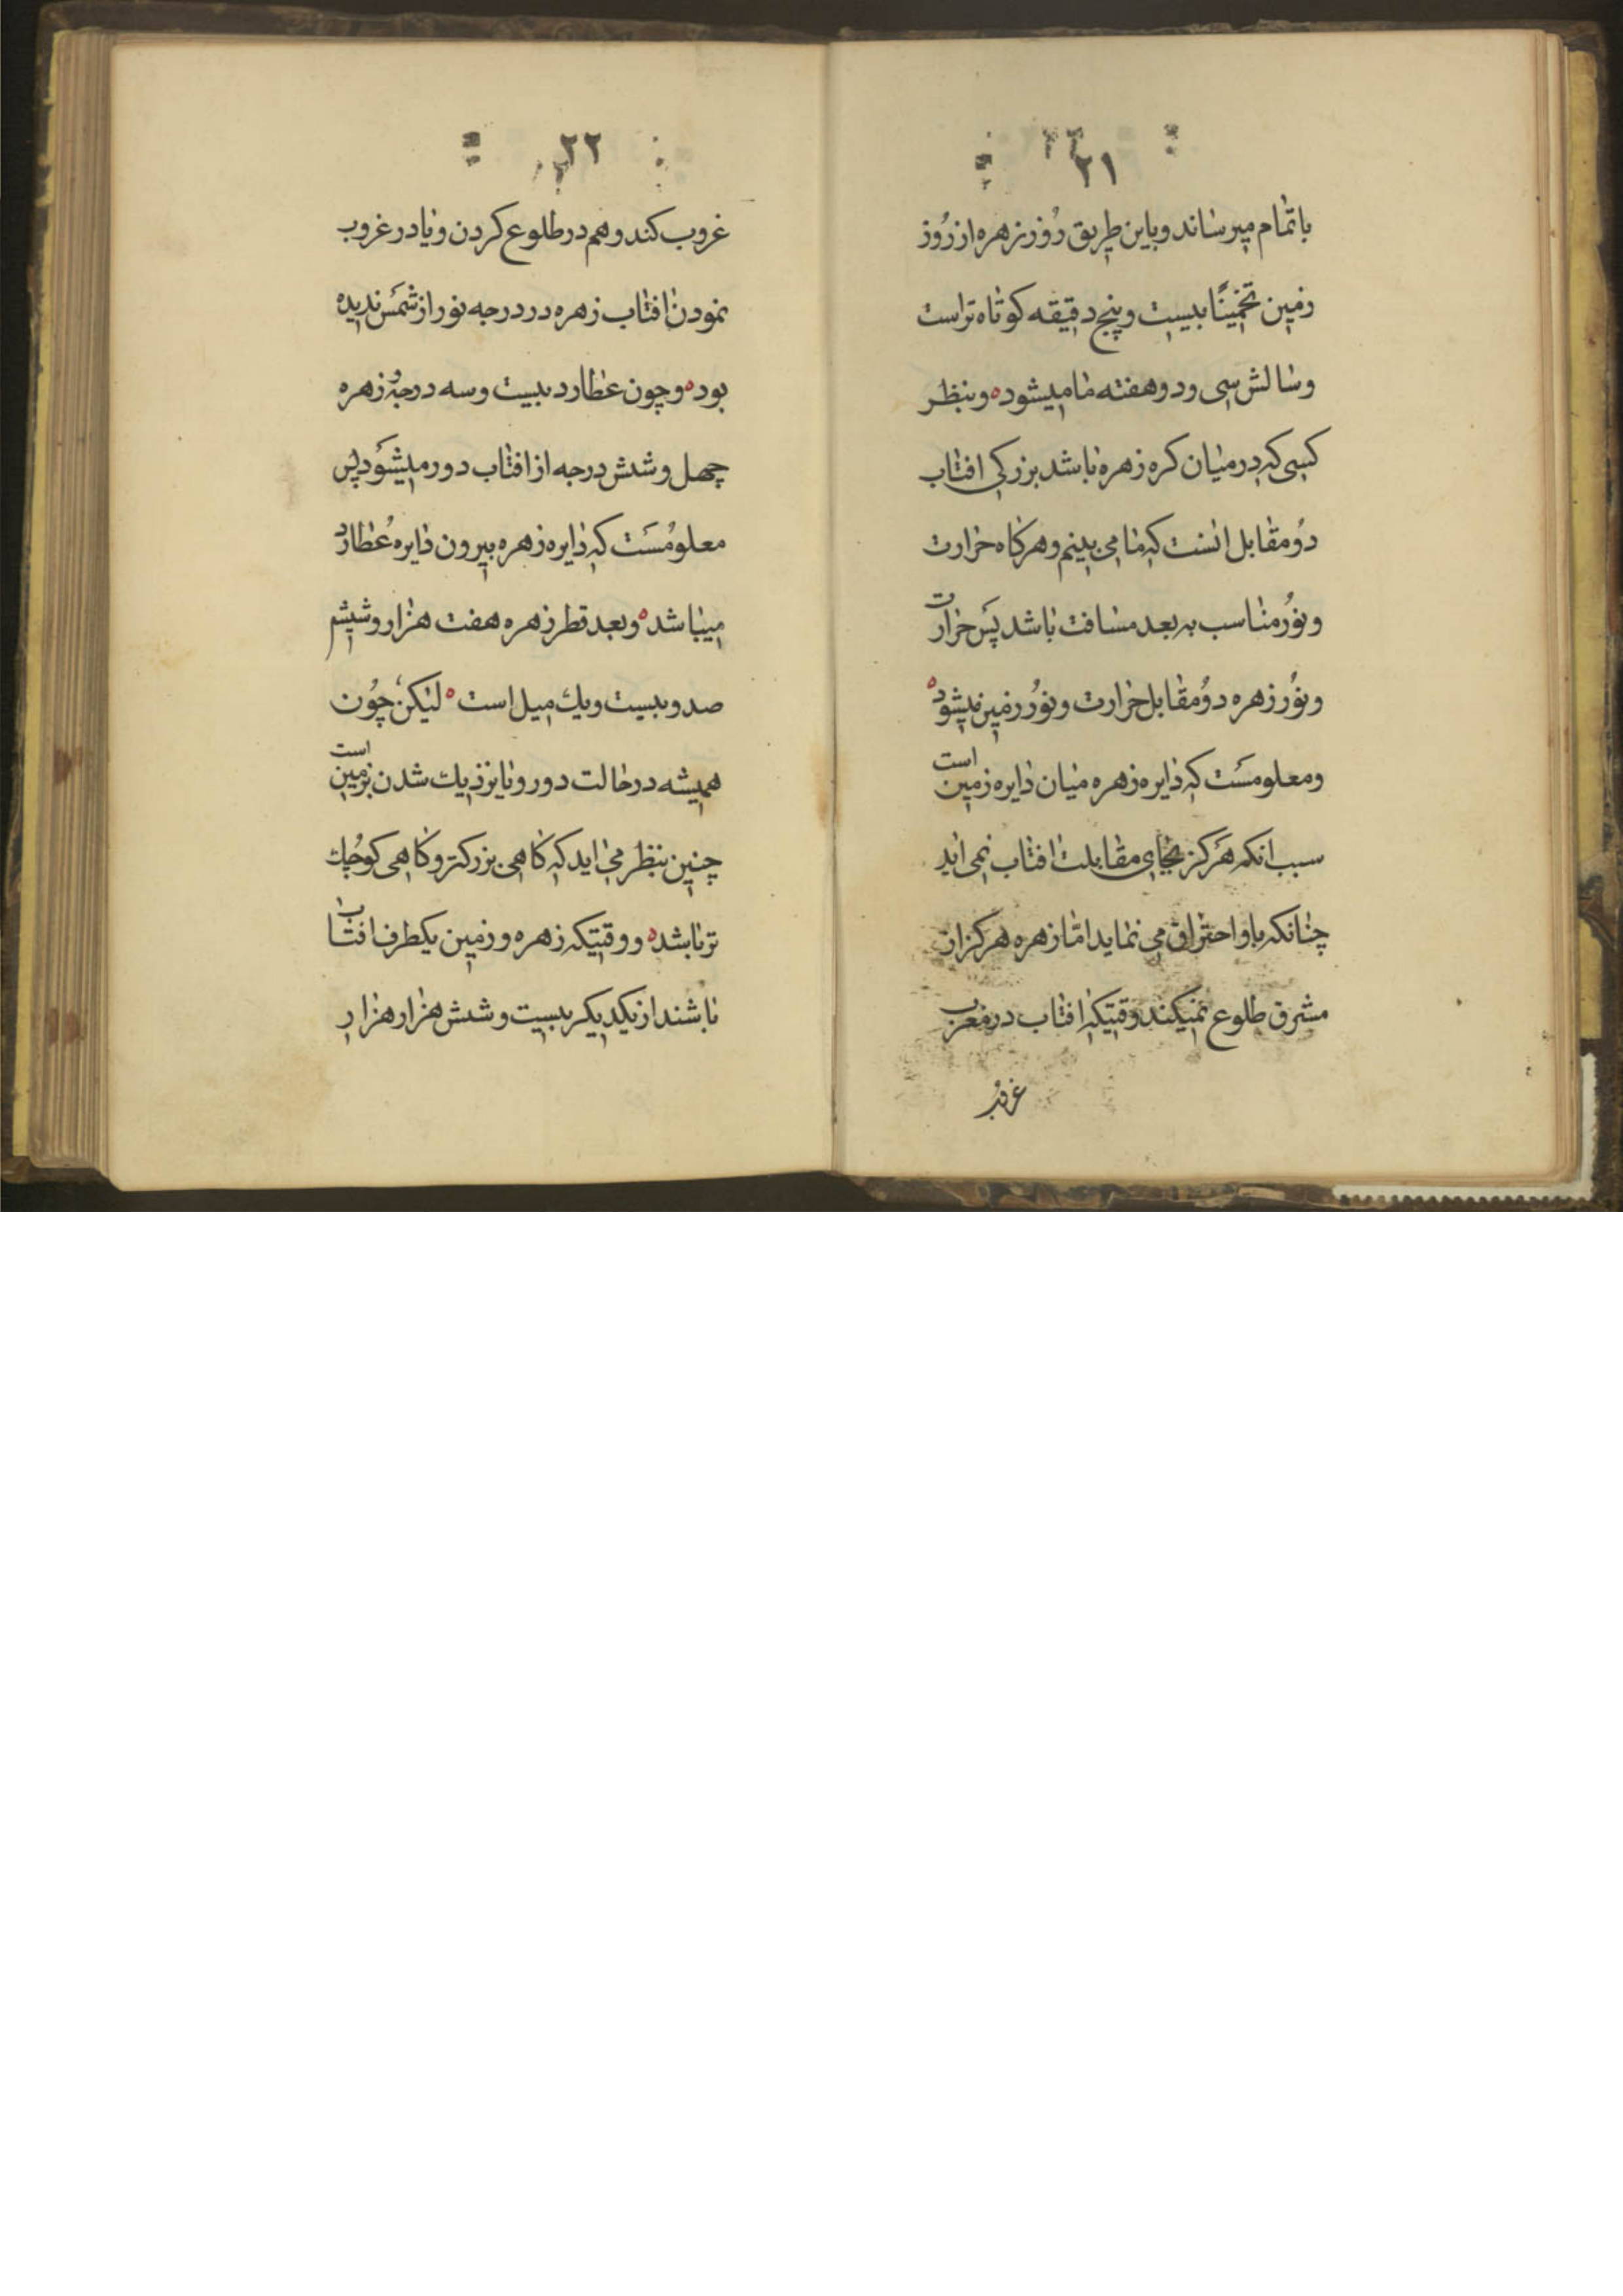 ۲۱
باتمام میرساند وباین طریق روز زهره از روز
زمین تخمینًا بیست و پنج دقیقه کوتاه تر است
وسالش سی ودو هفته ما میشود ه وبنظر
کسی که در میان کره زهره باشد بزرکی افتاب
دو مقابل انست که ما می بینم وهر کاه حرارت
ونور مناسب به بعد مسافت باشد پس حرارت
ونور زهره دو مقابل حرارت ونور زمین میشود ه
ومعلومست که دایره زهره میان دایره زمین است
سبب انکه هرکز بجای مقابلت افتاب نمی اید
چنانکه باو احتراق می نماید اما زهره هرکز از
مشرق طلوع نمیکند وقتیکه افتاب در مغرب
غروب
۲۲
غروب کند وهم در طلوع کردن ویا در غروب
نمودن افتاب زهره در درجه نور از شمس ندیده
بود ه وچون عطارد بیست وسه درجه و زهره
چهل وشش درجه از افتاب دور میشود پس
معلومست که دایره زهره بیرون دایره عطارد
میباشد ه وبعد قطر زهره هفت هزار وشیشم
صد وبیست ویك میل است ه لیکن چون
همیشه در حالت دور ویا نزدیك شدن بزمین است
چنین بنظر می اید که کاهی بزرکتر وکاهی کوچك
تر باشد ه ووقتیکه زهره وزمین یکطرف افتاب
باشند از یکدیکر بیست وشش هزار هزار